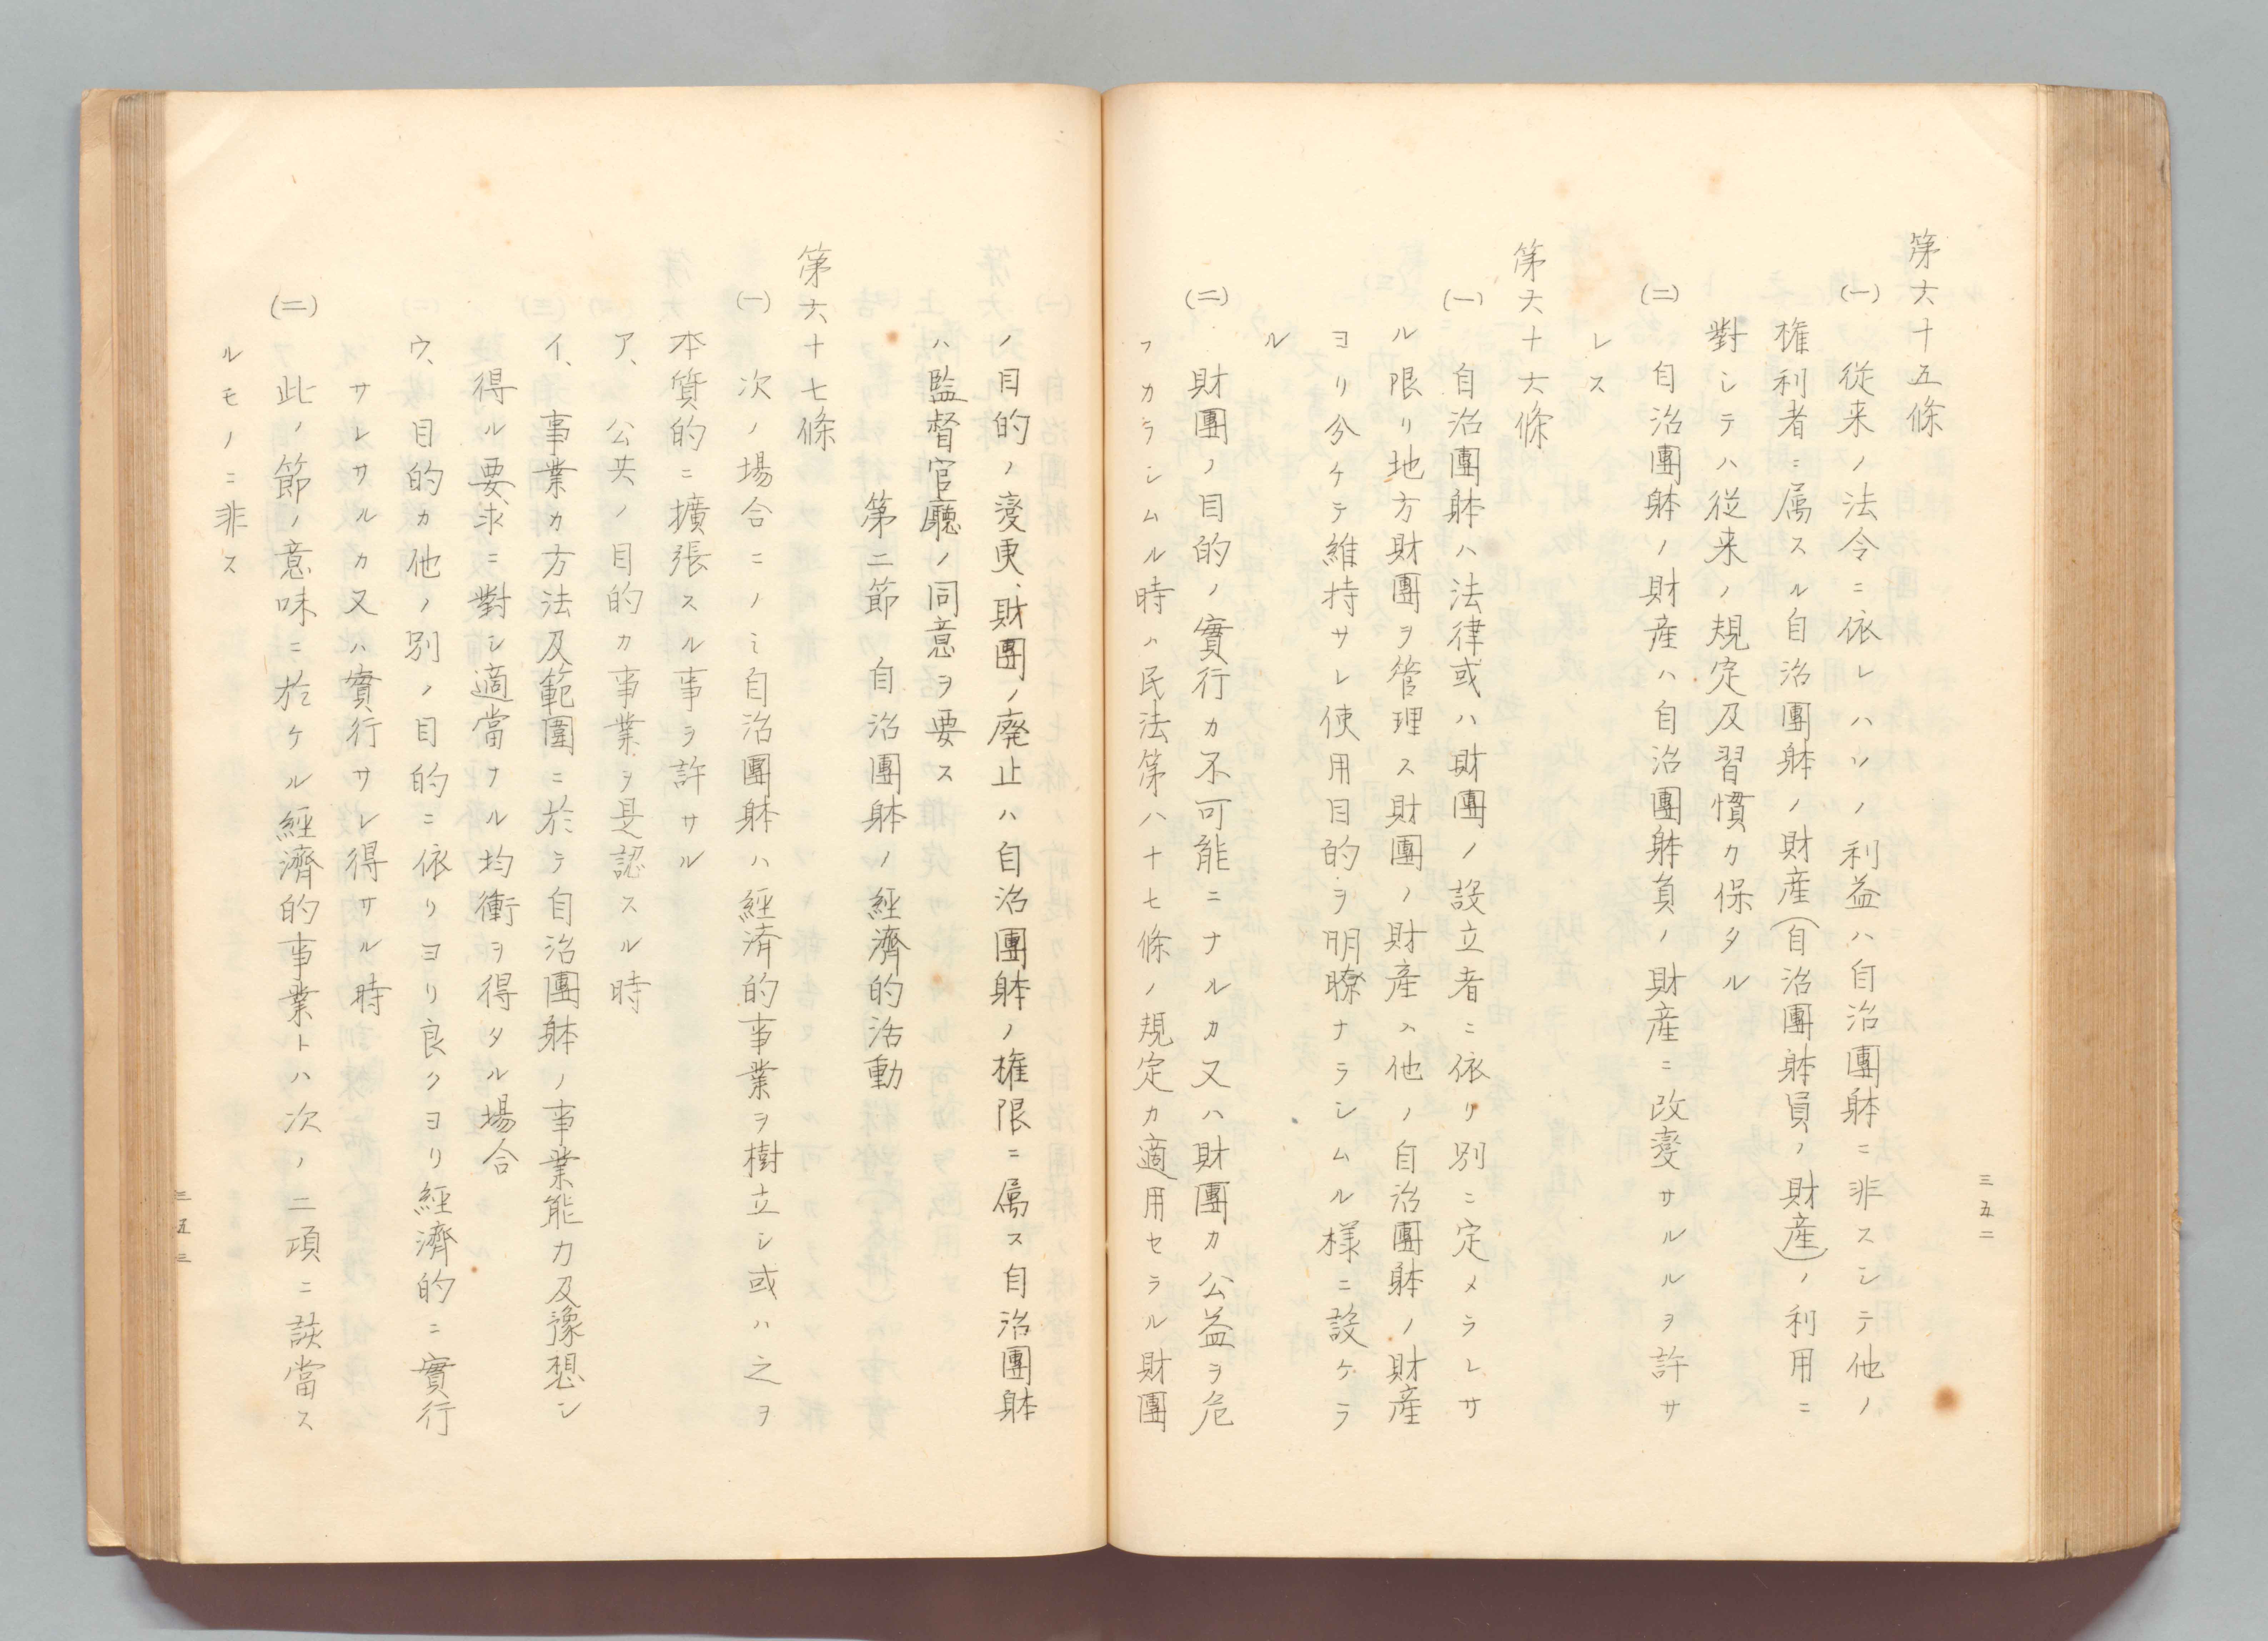 三五二
第六十五條
(一) 從来ノ法令ニ依レハソノ利益ハ自治團躰ニ非スシテ他ノ
権利者ニ属スル自治團躰ノ財産(自治團躰員ノ財産)ノ利用ニ
對シテハ従来ノ規定及習慣カ保タル
(二) 自治團躰ノ財産ハ自治團躰員ノ財産ニ改変サルルヲ許サ
レス
第六十六條
(一) 自治團躰ハ法律或ハ財團ノ設立者ニ依リ別ニ定メラレサ
ル限リ地方財團ヲ管理ス財團ノ財産ハ他ノ自治團躰ノ財産
ヨリ分ケテ維持サレ使用目的ヲ明瞭ナラシムル様ニ設ケラ
ル
(二) 財團ノ目的ノ實行カ不可能ニナルカ又ハ財團カ公益ヲ危
フカラシムル時ハ民法第八十七條ノ規定カ適用セラル財團
ノ目的ノ変更、財團ノ廃止ハ自治團躰ノ権限ニ属ス自治團躰
ハ監督官廳ノ同意ヲ要ス
第二節 自治團躰ノ經濟的活動
第六十七條
(一) 次ノ場合ニノミ自治團躰ハ經済的事業ヲ樹立シ或ハ之ヲ
本質的ニ擴張スル事ヲ許サル
ア、公共ノ目的カ事業ヲ是認スル時
イ、事業カ方法及範圍ニ於テ自治團躰ノ事業能力及豫想シ
得ル要求ニ對シ適當ナル均衝ヲ得タル場合
ウ、目的カ他ノ別ノ目的ニ依リヨリ良クヨリ經濟的ニ實行
サレサルカ又ハ實行サレ得サル時
(二) 此ノ節ノ意味ニ於ケル經濟的事業トハ次ノ二項ニ該當ス
ルモノニ非ス
三五三